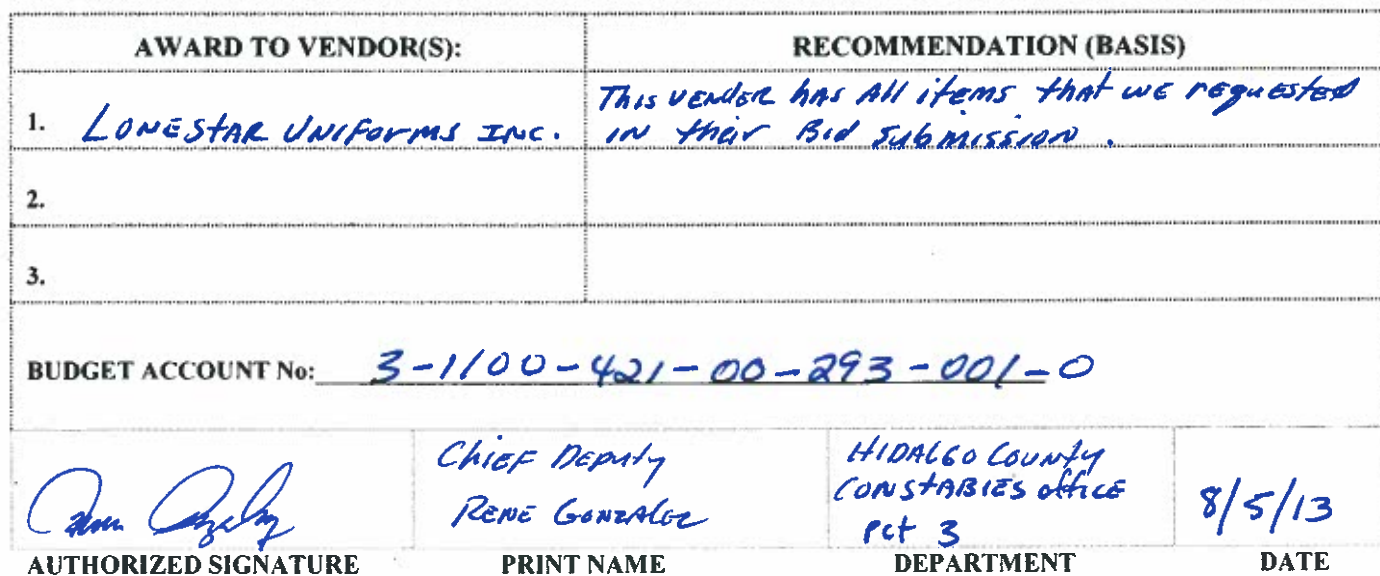 AWARD TO VENDOR(S):
RECOMMENDATION (BASIS)
1. LONESTAR UNIFORMS INC.
This vender has all items that we requested
in their Bid submission.
2.
3.
BUDGET ACCOUNT No: 3-1100-421-00-293-001-0
Chief Deputy
Rene Gonzalez
HIDALGO County
Constables office
Pct 3
8/5/13
AUTHORIZED SIGNATURE
PRINT NAME
DEPARTMENT
DATE